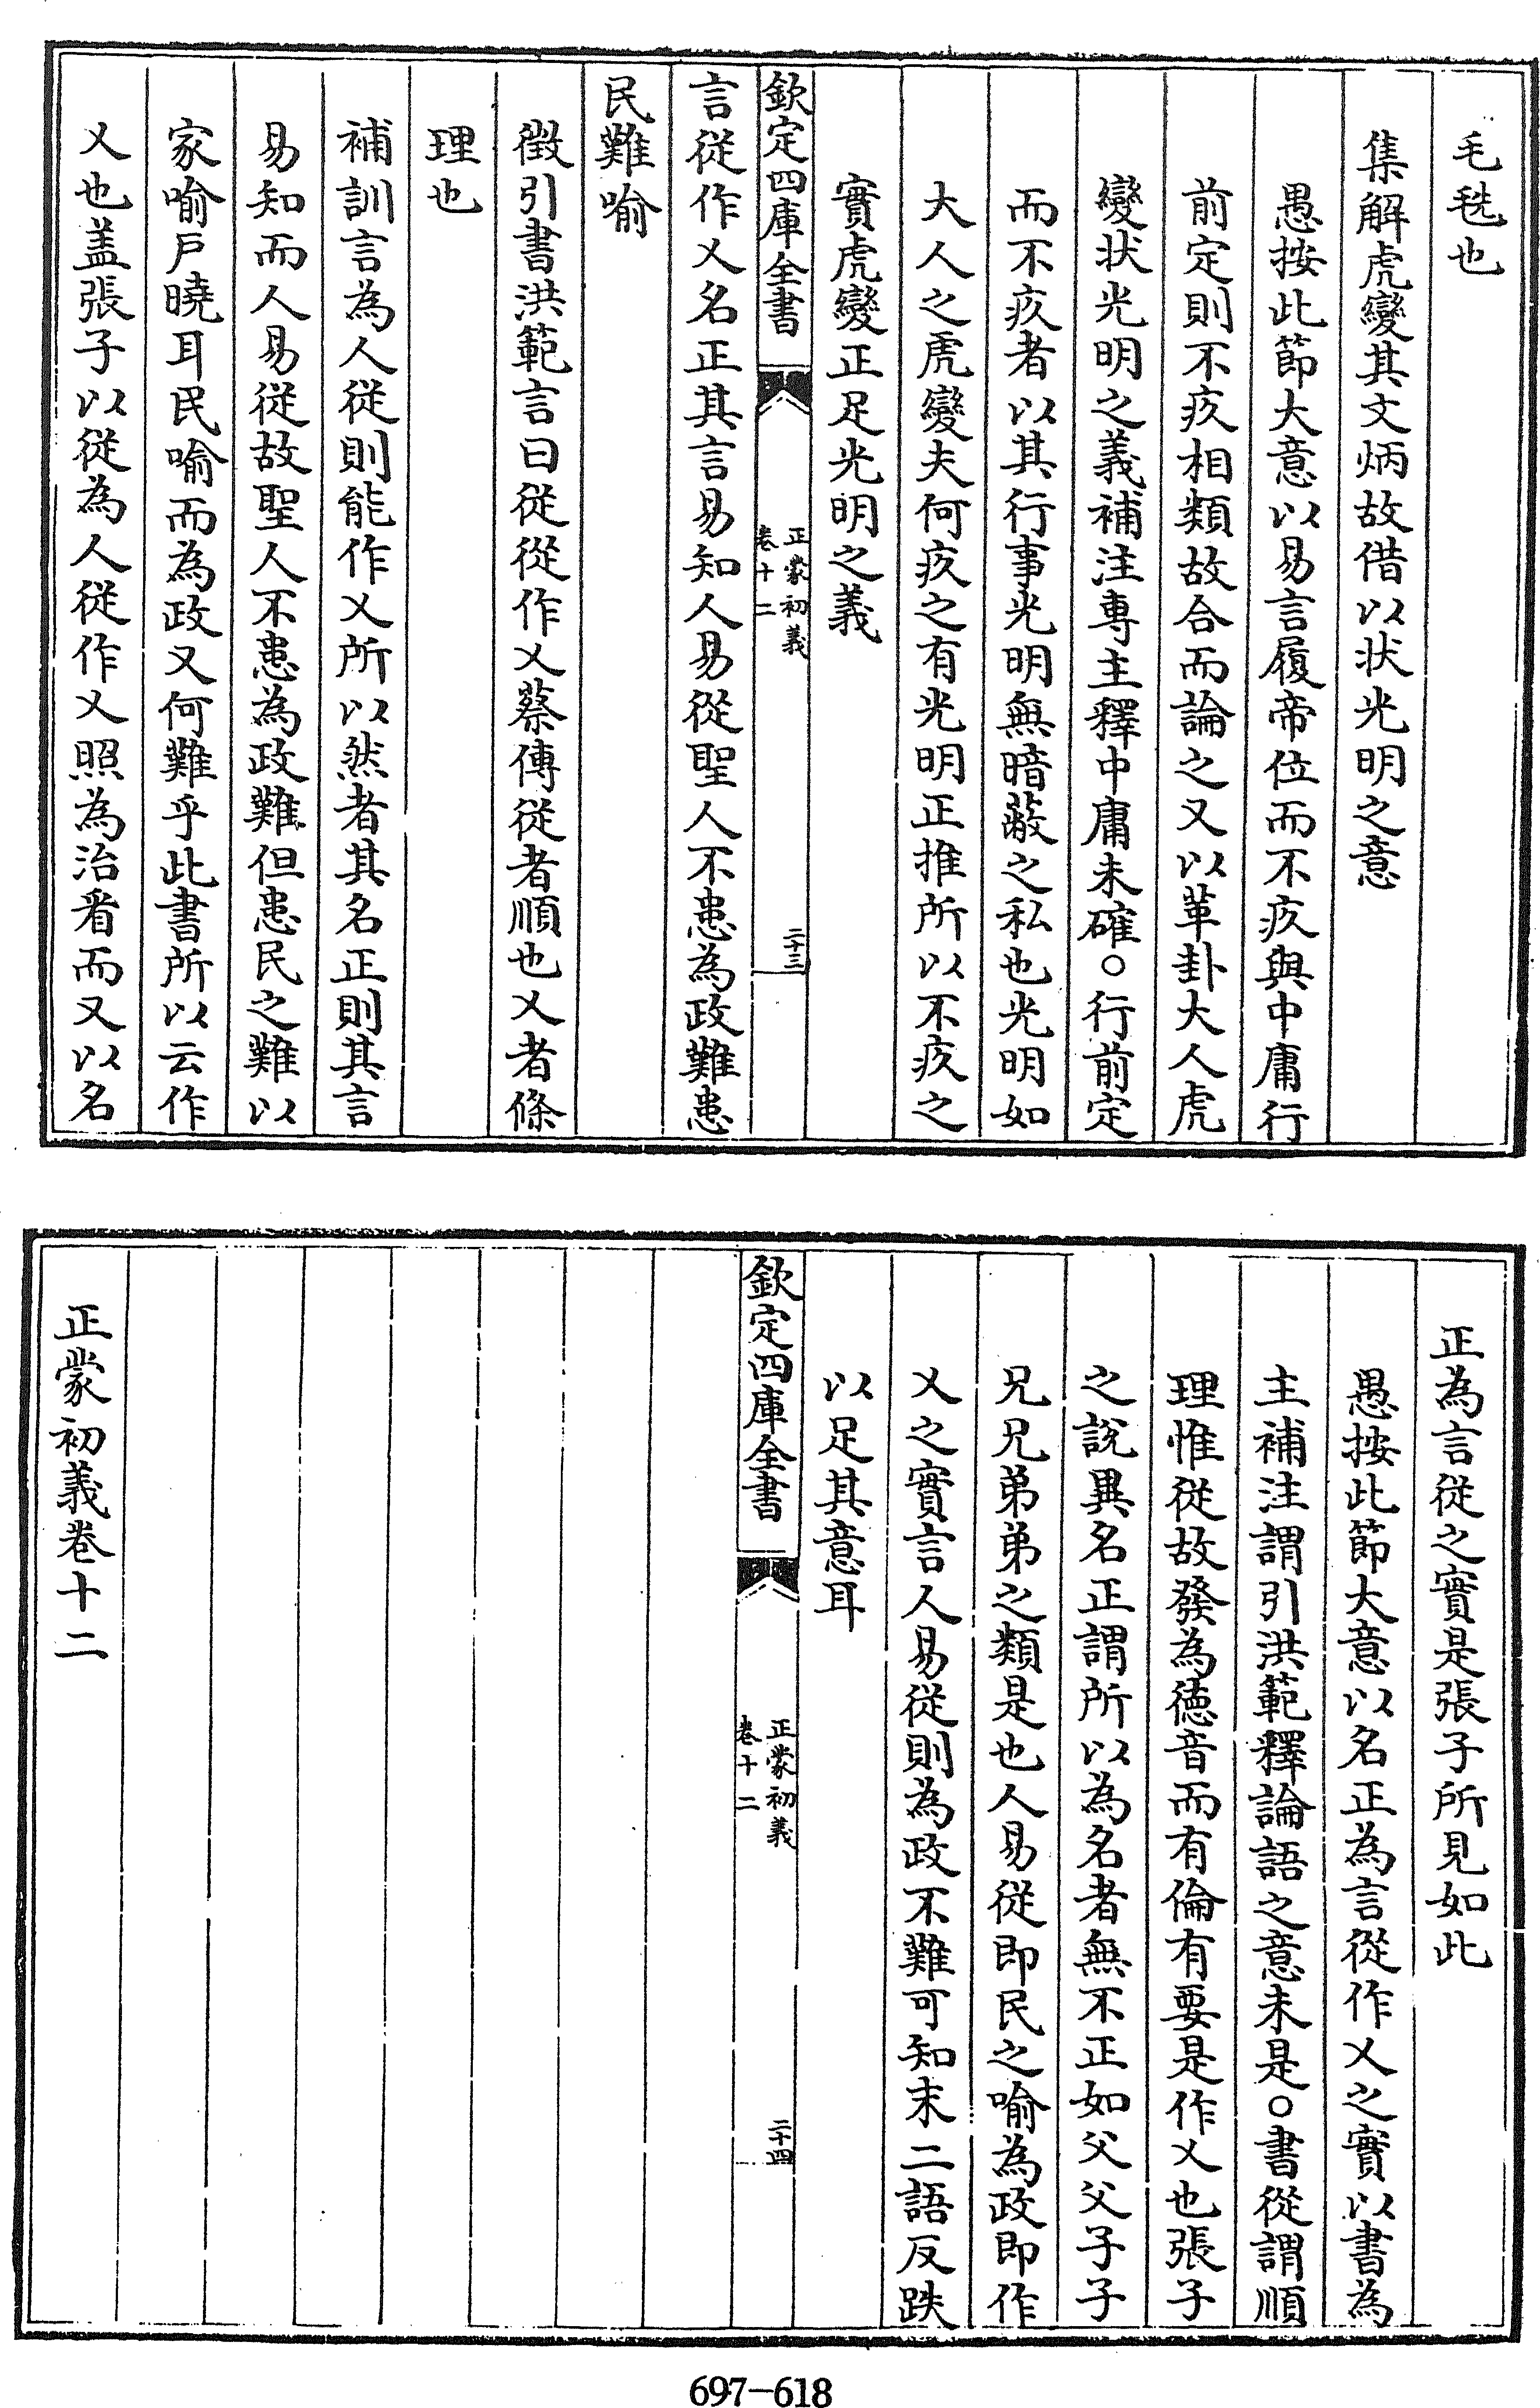 毛毨也
集解虎變其文炳故借以状光明之意
愚按此節大意以易言履帝位而不疚與中庸行
前定則不疚相類故合而論之又以革卦大人虎
變状光明之義補注專主釋中庸未確○行前定
而不疚者以其行事光明無暗蔽之私也光明如
大人之虎變夫何疚之有光明正推所以不疚之
實虎變正足光明之義
欽定四庫全書
正蒙初義
卷十二
二十三
言從作乂名正其言易知人易從聖人不患為政難患
民難喻
徵引書洪範言曰從從作乂蔡傳從者順也乂者條
理也
補訓言為人從則能作乂所以然者其名正則其言
易知而人易從故聖人不患為政難但患民之難以
家喻戶曉耳民喻而為政又何難乎此書所以云作
乂也盖張子以從為人從作乂照為治看而又以名
正為言從之實是張子所見如此
愚按此節大意以名正為言從作乂之實以書為
主補注謂引洪範釋論語之意未是○書從謂順
理惟從故發為徳音而有倫有要是作乂也張子
之説異名正謂所以為名者無不正如父父子子
兄兄弟弟之類是也人易從即民之喻為政即作
乂之實言人易從則為政不難可知末二語反跌
以足其意耳
欽定四庫全書
正蒙初義
卷十二
二十四
正蒙初義卷十二
697-618